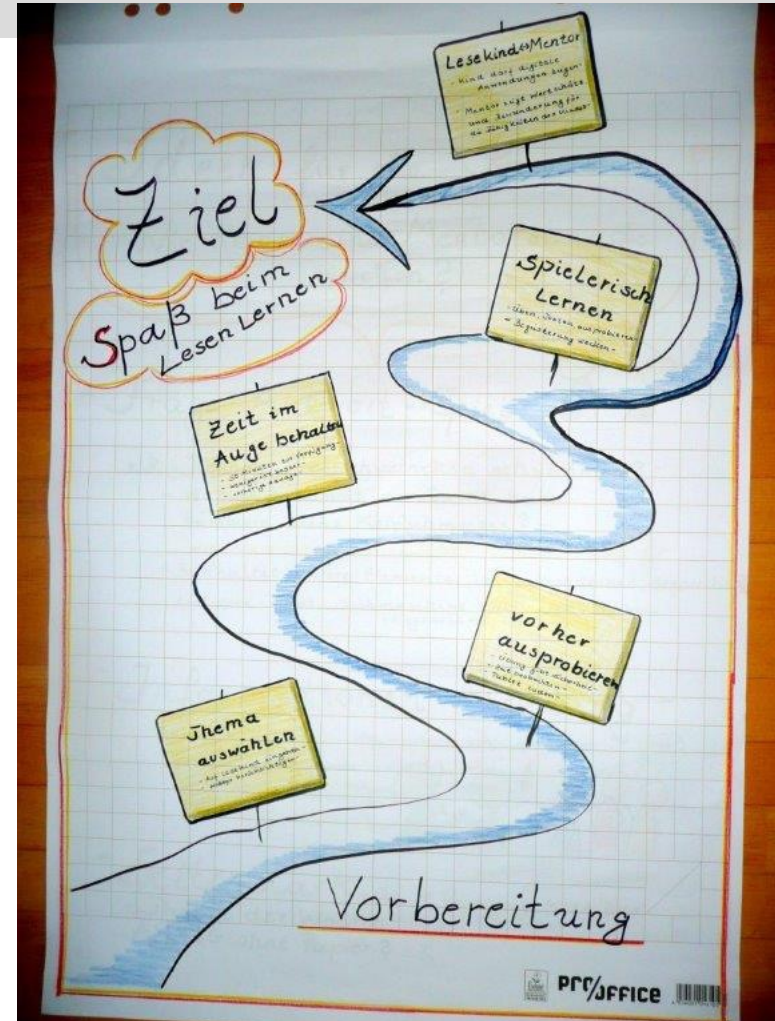 Lesekind↔Mentor
- Kind darf digitale
Anwendungen zeigen-
- Mentor zeigt Wertschätz
und Bewunderung für
die Fähigkeiten des Kindes-
Ziel
Spaß beim
Lesen Lernen
Spielerisch
Lernen
- Üben, Testen, ausprobieren-
- Begeisterung wecken-
Zeit im
Auge behalten
- 30 Minuten zur Verfügung-
- weniger ist besser-
vorher
ausprobieren
- Übung gibt Sicherheit-
- Tablet laden-
Thema
auswählen
- Auf Lesekind eingehen-
- Hobby berücksichtigen-
Vorbereitung
PRO/OFFICE